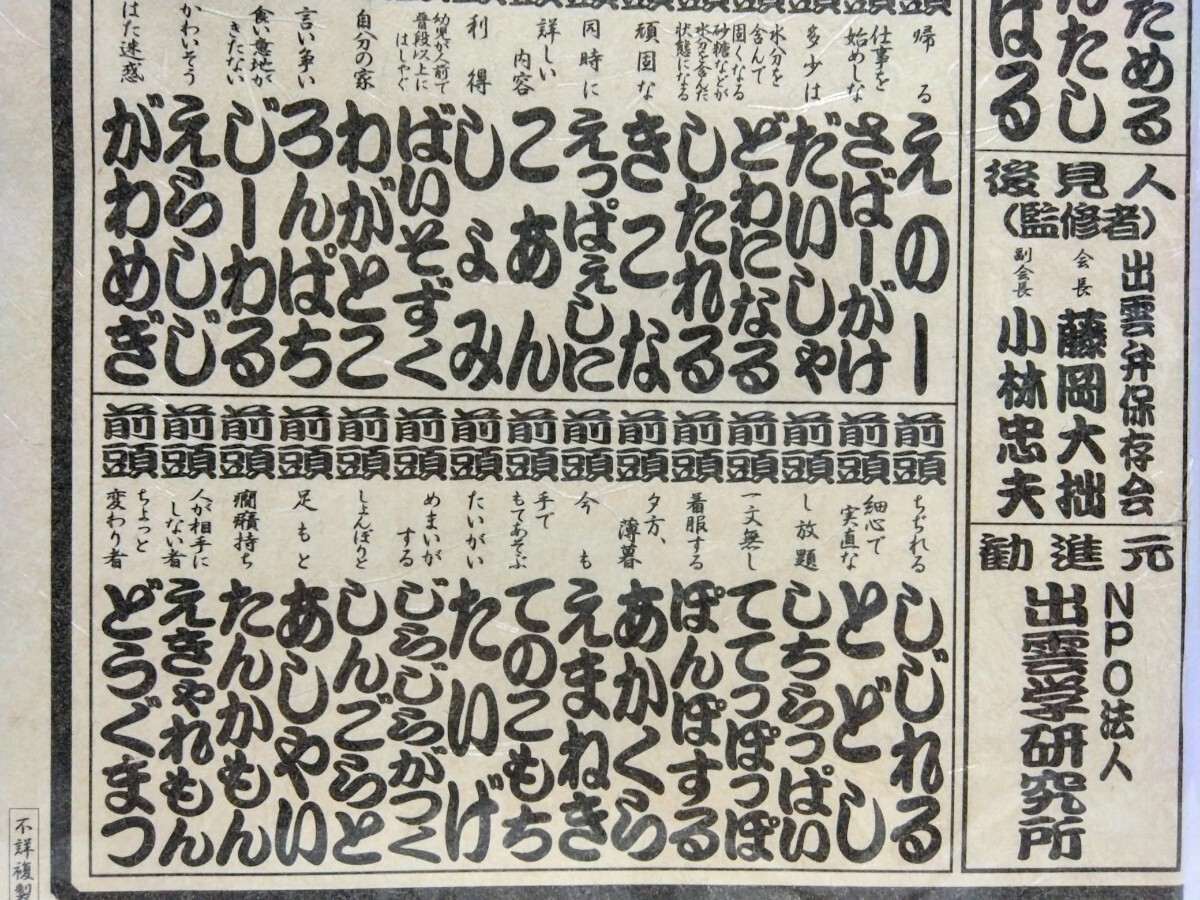 ためる
んたし
ばる
後見人
(監修者)
出雲弁保存会
会長 藤岡大拙
副会長 小林忠夫
勧進元
NPO法人
出雲学研究所
帰る
えのー
仕事を
始めしな
さばーがけ
多少は
だいしゃ
水分を
含んで
固くなる
どわになる
砂糖などが
水分を含んだ
状態になる
したれる
頑固な
きこな
同時に
えっぱえしに
詳しい
内容
こあん
利得
しょみ
幼児が人前で
普段以上に
はしゃぐ
ばいそずく
自分の家
わがとこ
言い争い
ろんぱち
食い意地が
きたない
じーわる
かわいそう
えらしじ
はた迷惑
がわめぎ
前頭
ちぢれる
しじれる
前頭
細心で
実直な
とどし
前頭
し放題
しちらっぱい
前頭
一文無し
ててっぽっぽ
前頭
着服する
ぽんぽする
前頭
夕方、
薄暮
あかくら
前頭
今も
えまねき
前頭
手で
もてあそぶ
てのこもち
前頭
たいがい
たいげ
前頭
めまいが
する
じらじらがつく
前頭
しょんぼりと
しんごらと
前頭
足もと
あしやい
前頭
癇癪持ち
たんかもん
前頭
人が相手に
しない者
えきゃれもん
前頭
ちょっと
変わり者
どうぐまつ
不詳複製